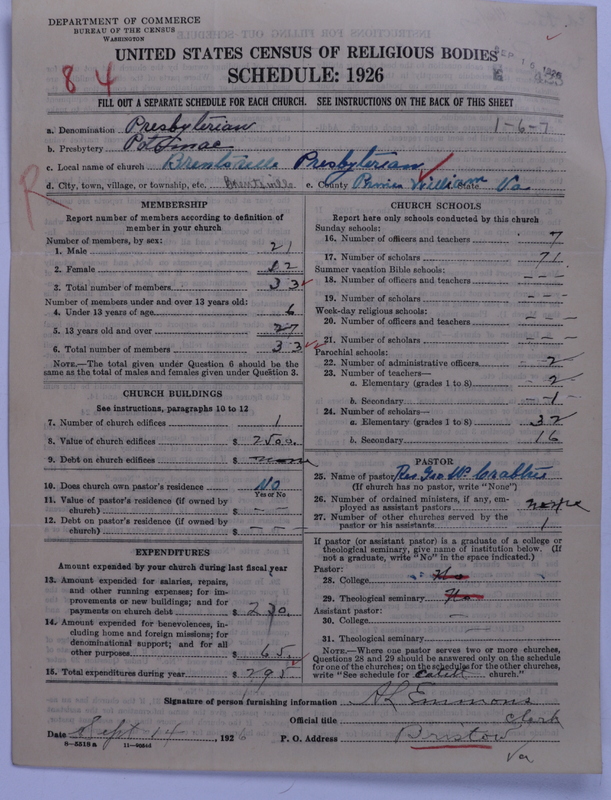 DEPARTMENT OF COMMERCE
BUREAU OF THE CENSUS
WASHINGTON
UNITED STATES CENSUS OF RELIGIOUS BODIES
SCHEDULE: 1926
84
SEP 1926
FILL OUT A SEPARATE SCHEDULE FOR EACH CHURCH. SEE INSTRUCTIONS ON THE BACK OF THIS SHEET
a. Denomination Presbyterian 1-6-7
b. Presbytery Potomac
c. Local name of church Brentsville Presbyterian
d. City, town, village, or township, etc. Brentsville e. County Prince William State Va
R
MEMBERSHIP
Report number of members according to definition of
member in your church
Number of members, by sex:
1. Male 21
2. Female 12
3. Total number of members 33
Number of members under and over 13 years old:
4. Under 13 years of age 6
5. 13 years old and over 27
6. Total number of members 33
NOTE.—The total given under Question 6 should be the
same as the total of males and females given under Question 3.
CHURCH BUILDINGS
See instructions, paragraphs 10 to 12
7. Number of church edifices 1
8. Value of church edifices $ 2500.
9. Debt on church edifices $ none
10. Does church own pastor's residence No
Yes or No
11. Value of pastor's residence (if owned by
church) $ – –
12. Debt on pastor's residence (if owned by
church) $ – – –
EXPENDITURES
Amount expended by your church during last fiscal year
13. Amount expended for salaries, repairs,
and other running expenses; for im-
provements or new buildings; and for
payments on church debt $ 230.
14. Amount expended for benevolences, in-
cluding home and foreign missions; for
denominational support; and for all
other purposes $ 65.
15. Total expenditures during year $ 295
CHURCH SCHOOLS
Report here only schools conducted by this church
Sunday schools:
16. Number of officers and teachers 7
17. Number of scholars 71
Summer vacation Bible schools:
18. Number of officers and teachers – – –
19. Number of scholars – – –
Week-day religious schools:
20. Number of officers and teachers – – –
21. Number of scholars – – –
Parochial schools:
22. Number of administrative officers 2
23. Number of teachers—
a. Elementary (grades 1 to 8) 2
b. Secondary 1
24. Number of scholars—
a. Elementary (grades 1 to 8) 32
b. Secondary 16
PASTOR
25. Name of pastor Rev Geo W. Crabtree
(If church has no pastor, write "None")
26. Number of ordained ministers, if any, em-
ployed as assistant pastors none
27. Number of other churches served by the
pastor or his assistants 1
If pastor (or assistant pastor) is a graduate of a college or
theological seminary, give name of institution below. (If
not a graduate, write "No" in the space indicated.)
Pastor:
28. College No
29. Theological seminary No
Assistant pastor:
30. College —
31. Theological seminary
NOTE.—Where one pastor serves two or more churches,
Questions 28 and 29 should be answered only on the schedule
for one of the churches; on the schedule for the other churches,
write "See schedule for church."
Signature of person furnishing information Emmons
Official title Clerk
Date Sept 14, 1926 P. O. Address Bristow
Va
8-5519 a